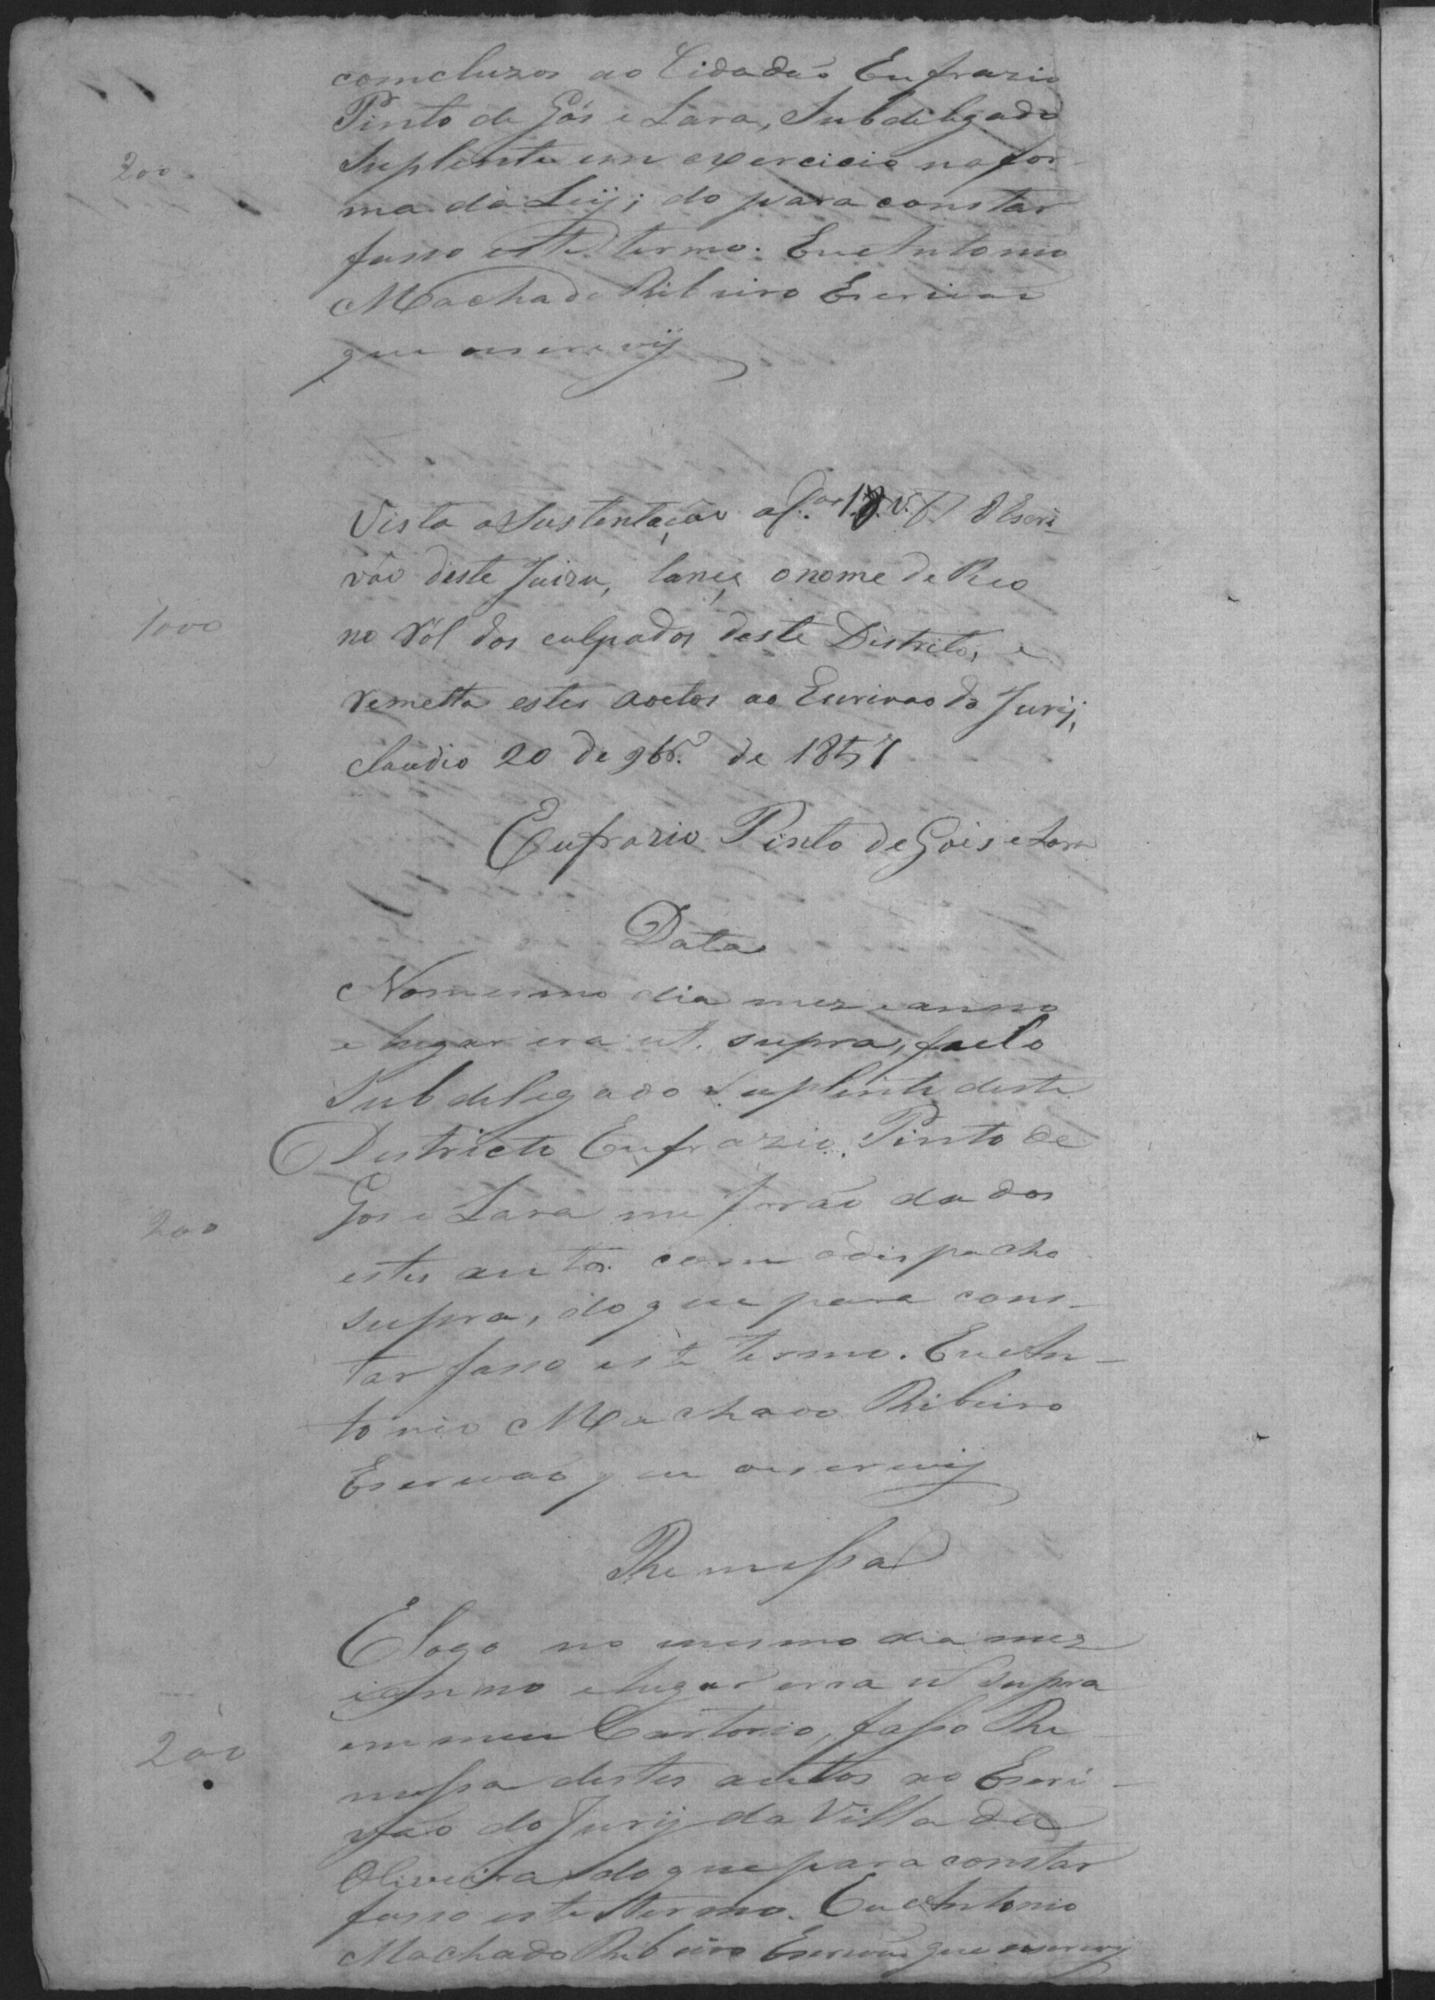 comcluzos ao Cidadão Eufrazio
Pinto de Gós e Lara, Subdelgado
Suplente em exercicio na for-
ma da Leij; do para constar
fasso este termo. Eu Antonio
Machado Ribeiro Escrivão
que escrevij
200
Vista a Sustentação
vão deste Juizo, lance o nome do Reo
no Ról dos culpados deste Distrito, e
1000
remetta estes autos ao Escrivao do Jurij,
Claudio 20 de 9br.º de 1857
Eufrazio Pinto de Góis e Lara
Data
No mesmo dia mez e anno
e lugar era ut supra, pelo
Subdelegado Suplente deste
Districto Eufrazio Pinto de
Gos e Lara me forão dados
200
estes autos com o dispacho
supra, do que para cons-
tar fasso este termo. Eu An-
tonio Machado Ribeiro
Escrivão que escrevij
Remessa
E logo no mesmo dia mez
e anno e lugar erra ut supra
em meu Cartorio, fasso Re
200
messa destes autos ao Escri-
vão do Jurij da Villa da
Oliveira do que para constar
fasso este termo. Eu Antonio
Machado Ribeiro Escrivão que escrevij